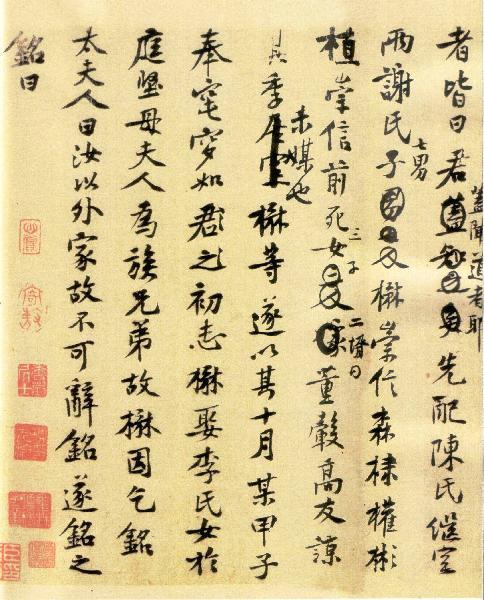 者皆曰君蓋先配陳氏繼室
蓋聞道者耶
兩謝氏子楙崇信森棣權彬
七男
植崇信前死女董瑴高友諒
三子
二壻曰
其季室楙等遂以其十月某甲子
未媒也
奉窀穸如君之初志楙娶李氏女於
庭堅母夫人為族兄弟故楙因乞銘
太夫人曰汝以外家故不可辭銘遂銘之
銘曰